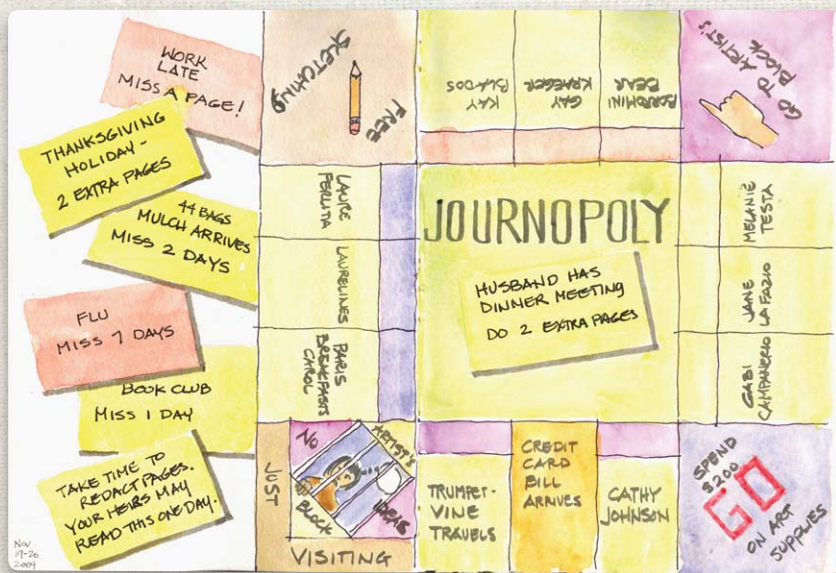 WORK
LATE
MISS A PAGE!
THANKSGIVING
HOLIDAY -
2 EXTRA PAGES
44 BAGS
MULCH ARRIVES
MISS 2 DAYS
FLU
MISS 7 DAYS
BOOK CLUB
MISS 1 DAY
TAKE TIME TO
REDACT PAGES.
YOUR HEIRS MAY
READ THIS ONE DAY.
NOV
19-20
2009
FREE
SKETCHING
KAY
BLADOS
GAY
KRAEGER
BORROMINI
BEAR
GO TO ARTIST'S
BLOCK
LAURE
FERLITA
LAURELINES
PARIS
BREAKFASTS
CAROL
JOURNOPOLY
HUSBAND HAS
DINNER MEETING
DO 2 EXTRA PAGES
MELANIE
TESTA
JANE
LA FAZIO
GABI
CAMPANERIO
JUST
VISITING
NO
IDEAS
ARTIST'S
BLOCK
TRUMPET-
VINE
TRAVELS
CREDIT
CARD
BILL
ARRIVES
CATHY
JOHNSON
SPEND
$200
GO
ON ART
SUPPLIES